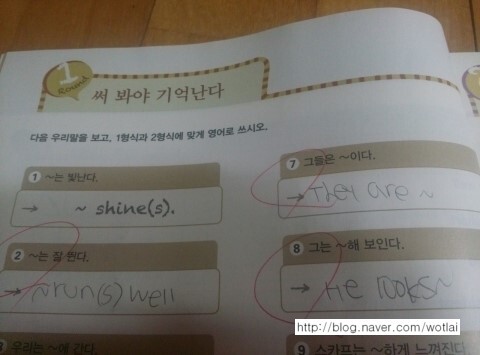 1
Round
써 봐야 기억난다
다음 우리말을 보고, 1형식과 2형식에 맞게 영어로 쓰시오.
1 ~는 빛난다.
→ ~ shine(s).
2 ~는 잘 뛴다.
→ ~run(s) well
3 우리는 ~에 간다.
7 그들은 ~이다.
→ They are ~
8 그는 ~해 보인다.
→ He looks~
9 스카프는 ~하게 느껴진다
http://blog.naver.com/wotlai